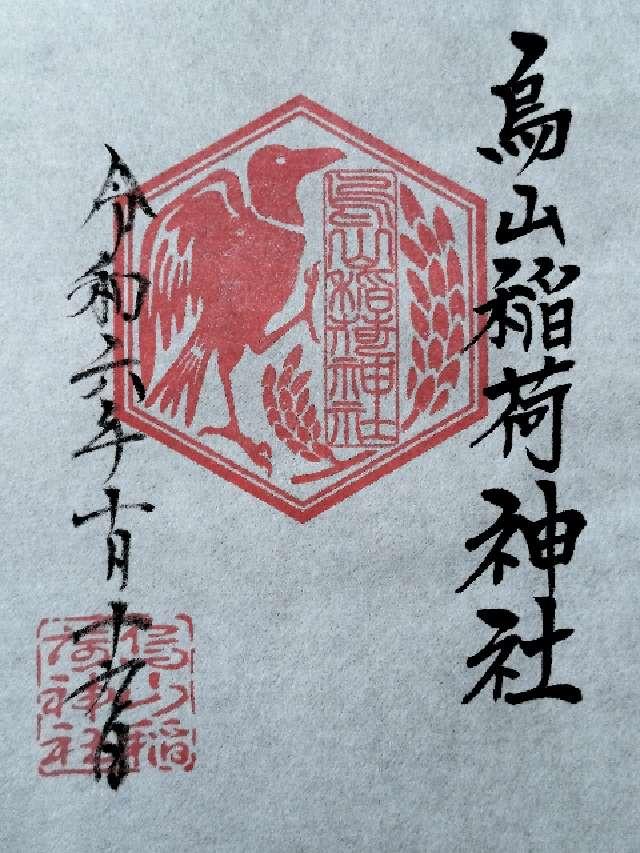 烏山稲荷神社
烏山稲荷神社
令和六年十月十九日
烏山稲荷神社